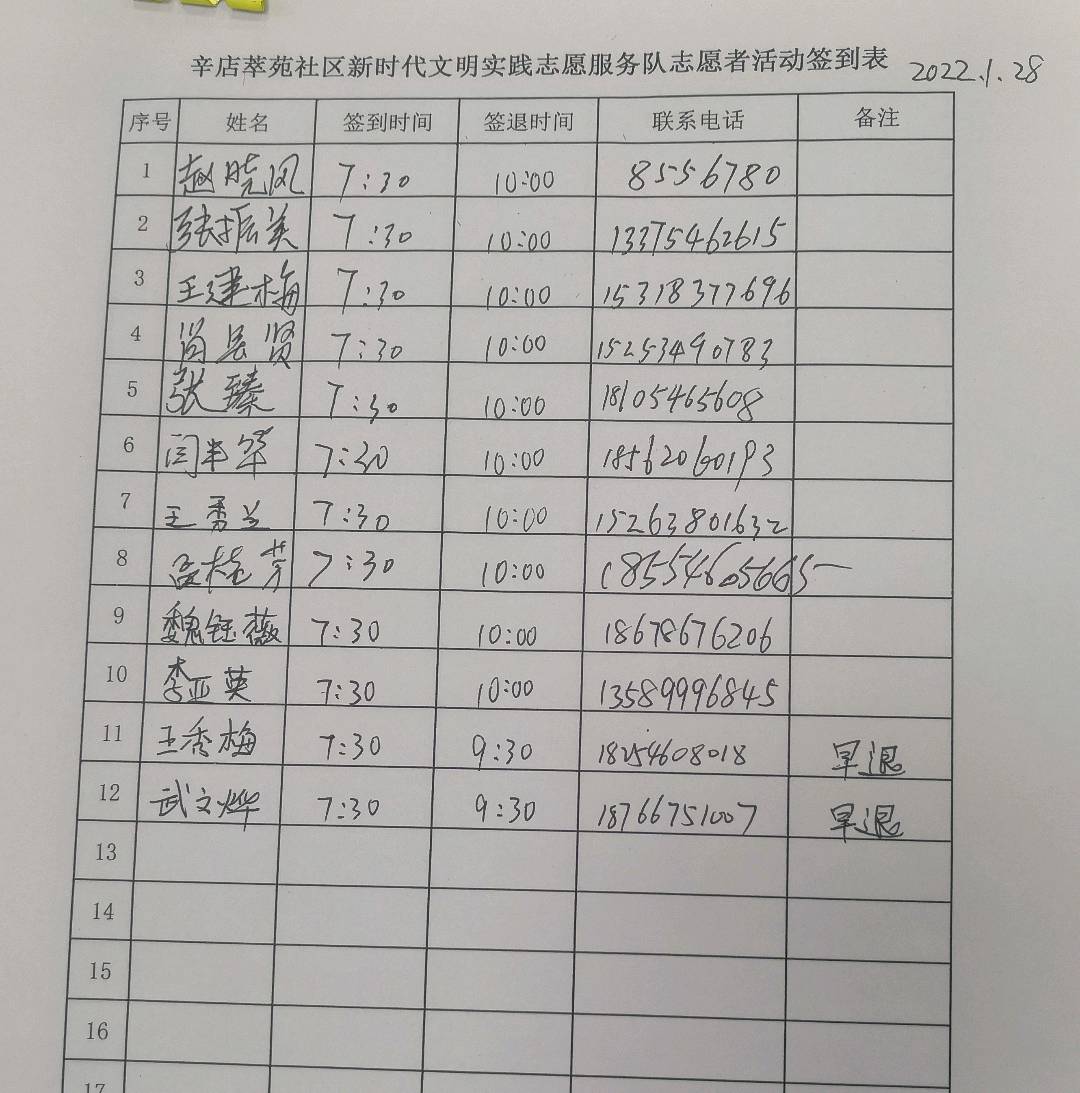 辛店萃苑社区新时代文明实践志愿服务队志愿者活动签到表 2022.1.28
序号 姓名 签到时间 签退时间 联系电话 备注
1 赵晓凤 7:30 10:00 8556780
2 张振美 7:30 10:00 13375462615
3 王建梅 7:30 10:00 15318377696
4 尚长贤 7:30 10:00 15253490783
5 张臻 7:30 10:00 18105465608
6 闫丰华 7:30 10:00 18562060193
7 王秀兰 7:30 10:00 15263801632
8 孟桂芳 7:30 10:00 18554605665
9 魏钰薇 7:30 10:00 18678676206
10 李亚英 7:30 10:00 13589996845
11 王秀梅 7:30 9:30 18254608018 早退
12 武文烨 7:30 9:30 18766751007 早退
13
14
15
16
17